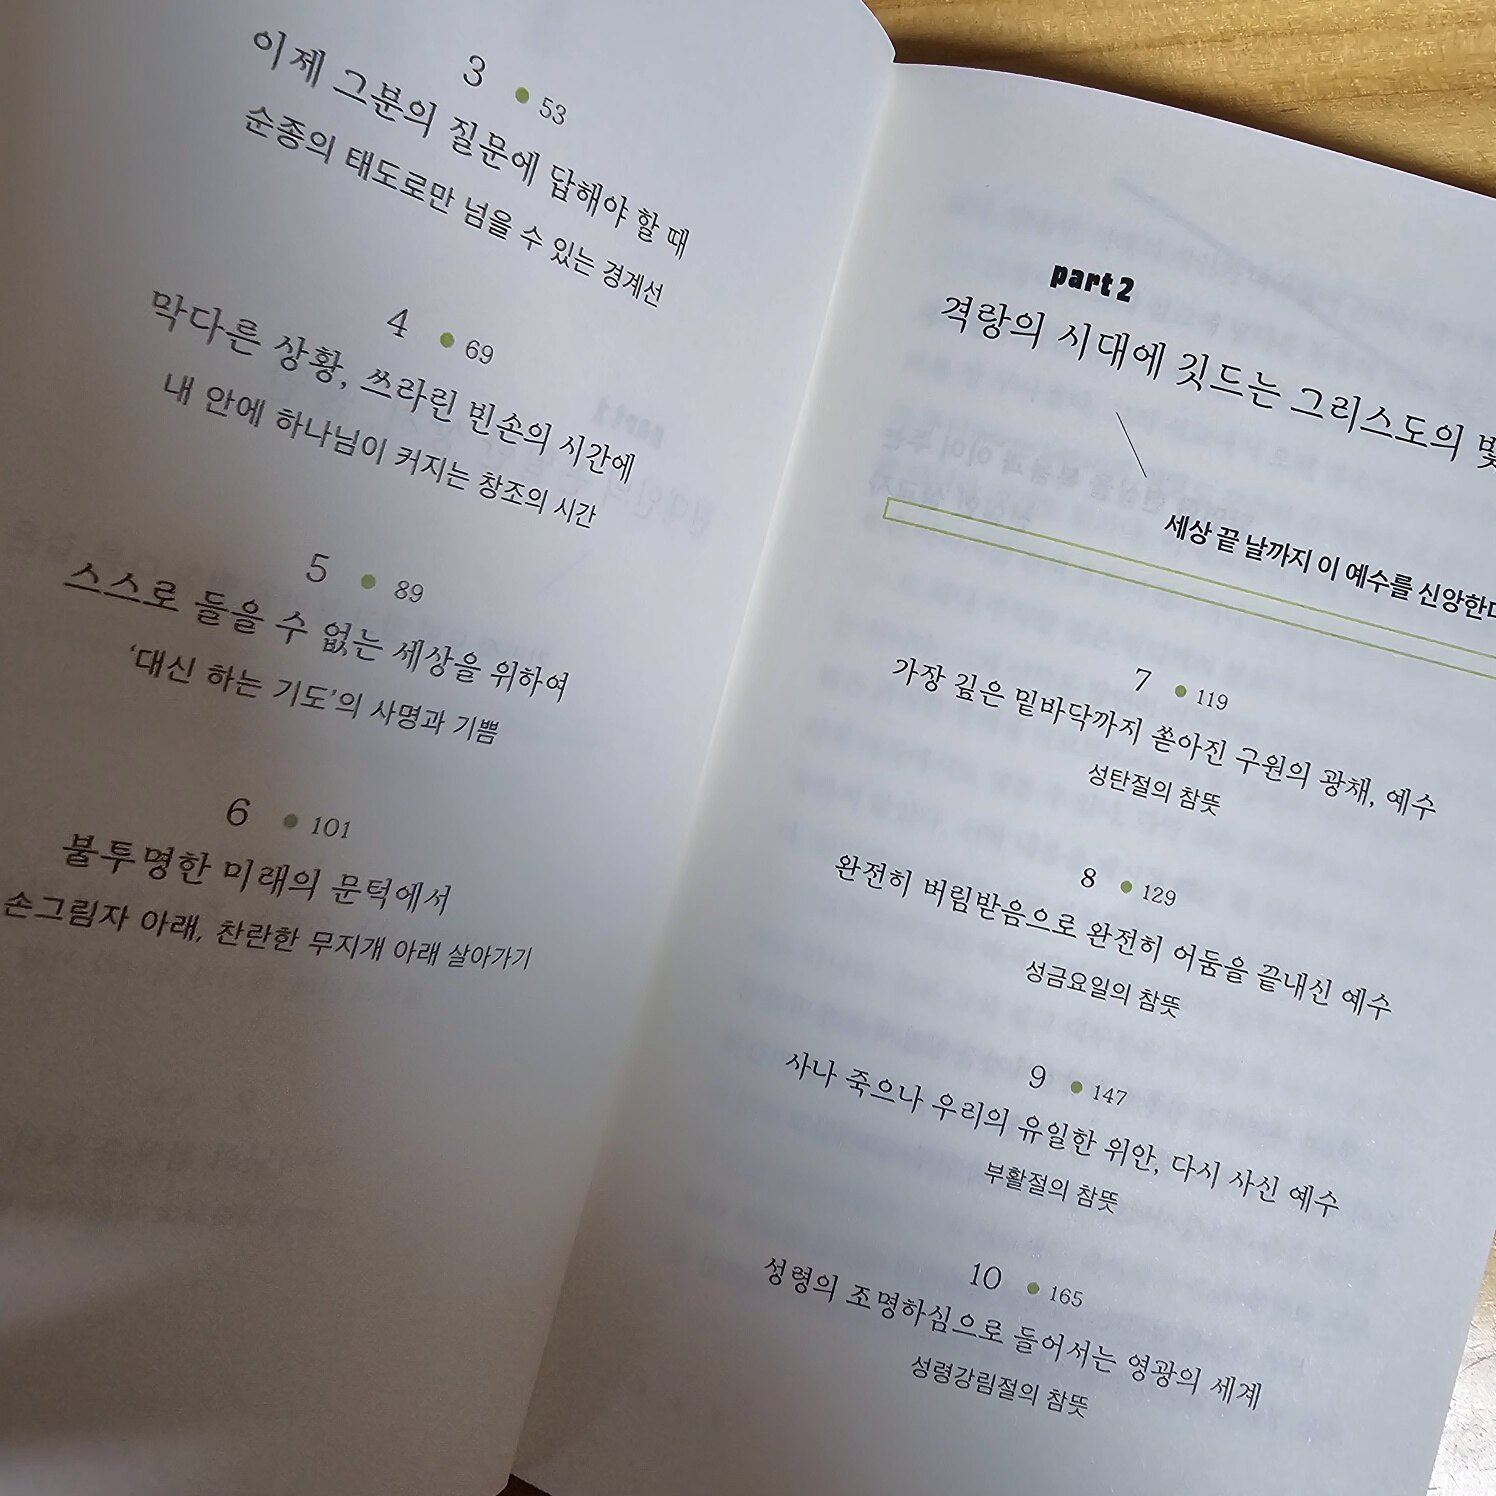 3 • 53
이제 그분의 질문에 답해야 할 때
순종의 태도로만 넘을 수 있는 경계선
4 • 69
막다른 상황, 쓰라린 빈손의 시간에
내 안에 하나님이 커지는 창조의 시간
5 • 89
스스로 들을 수 없는 세상을 위하여
‘대신 하는 기도’의 사명과 기쁨
6 • 101
불투명한 미래의 문턱에서
손그림자 아래, 찬란한 무지개 아래 살아가기
part 2
격랑의 시대에 깃드는 그리스도의 빛
세상 끝 날까지 이 예수를 신앙한다
7 • 119
가장 깊은 밑바닥까지 쏟아진 구원의 광채, 예수
성탄절의 참뜻
8 • 129
완전히 버림받음으로 완전히 어둠을 끝내신 예수
성금요일의 참뜻
9 • 147
사나 죽으나 우리의 유일한 위안, 다시 사신 예수
부활절의 참뜻
10 • 165
성령의 조명하심으로 들어서는 영광의 세계
성령강림절의 참뜻